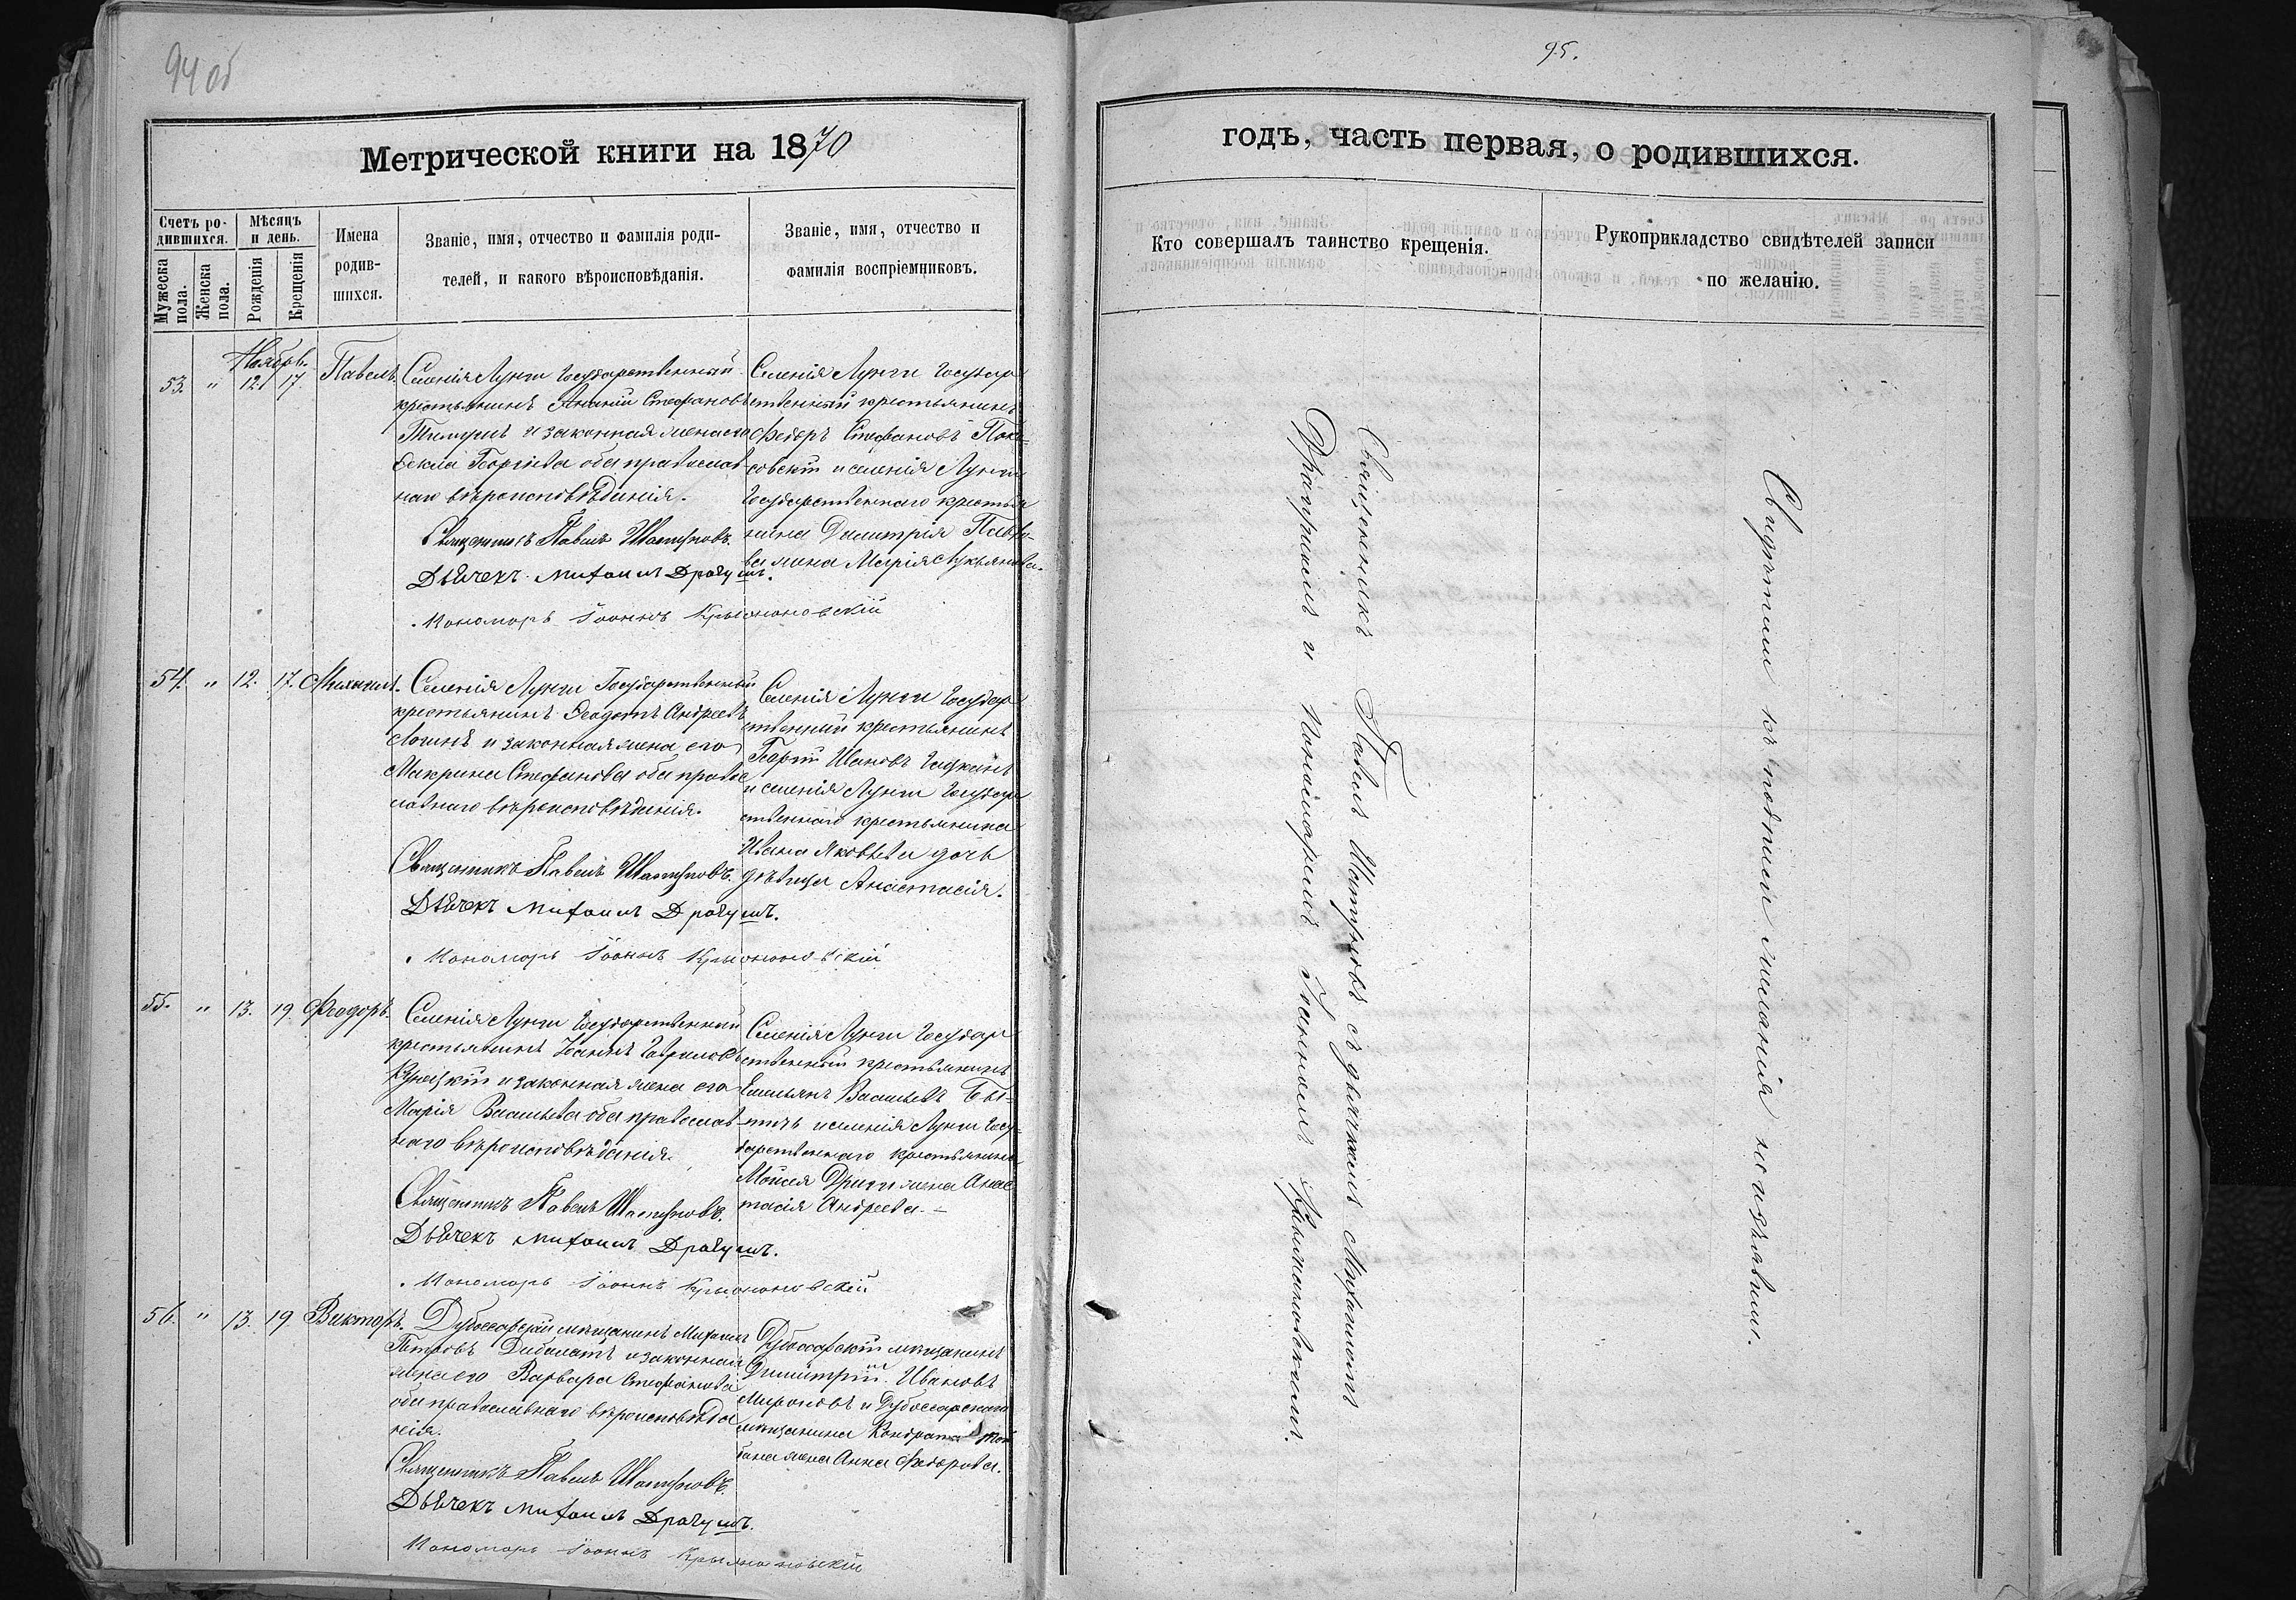 94 об
95.
Метрической книги на 1870
годъ, часть первая, о родившихся.
Счетъ ро-
дившихся.
Мужеска
пола.
Женска
пола.
Мѣсяцъ
и день.
Рожденія
Крещенія
Имена
родив-
шихся.
Званіе, имя, отчество и фамилія роди-
телей, и какого вѣроисповѣданія.
Званіе, имя, отчество и
фамилія воспріемниковъ.
Кто совершалъ таинство крещенія.
Рукоприкладство свидѣтелей записи
по желанію.
Ноябрь.
53. " 12. 17. Павелъ.
Селенія Лунги Государственный
крестьянинъ Ананій Стефановъ
и законная жена его
Георгіева оба православ
наго вѣроисповѣданія.
Священникъ Павелъ Шатуновъ.
Дьячекъ Михаилъ Драгушъ.
Пономарь Іоаннъ Крыжановскій
Селенія Лунги Государ
ственный крестьянинъ
Федоръ Стефановъ
и селенія Лунги
Государственнаго крестья
нина Димитрія
жена Марія Лукьянова.
54. " 12. 17. Михаилъ.
Селенія Лунги Государственный
крестьянинъ Феодотъ Андреевъ
и законная жена его
Макрина Стефанова оба правос
лавнаго вѣроисповѣданія.
Священникъ Павелъ Шатуновъ.
Дьячекъ Михаилъ Драгушъ.
Пономарь Іоаннъ Крыжановскій
Селенія Лунги Государ
ственный крестьянинъ
Георгій Ивановъ
и селенія Лунги Государ
ственнаго крестьянина
Ивана Яковлева дочь
дѣвица Анастасія.
55. " 13. 19 Феодоръ.
Селенія Лунги Государственный
крестьянинъ Іоаннъ Гавриловъ
и законная жена его
Марія Васильева оба православ
наго вѣроисповѣданія.
Священникъ Павелъ Шатуновъ.
Дьячекъ Михаилъ Драгушъ.
Пономарь Іоаннъ Крыжановскій
Селенія Лунги Государ
ственный крестьянинъ
Емельянъ Васильевъ
и селенія Лунги Госу-
дарственнаго крестьянина
Мойсея жена Анас
тасія Андреева.
56. " 13. 19 Викторъ.
Дубоссарскій мѣщанинъ Михаилъ
Петровъ и законная
жена его Варвара Стефанова
оба православнаго вѣроисповѣда
нія.
Священникъ Павелъ Шатуновъ.
Дьячекъ Михаилъ Драгушъ.
Пономарь Іоаннъ Крыжановскій
Дубоссарскій мѣщанинъ
Димитрій Ивановъ
Мироновъ и Дубоссарскаго
мѣщанина Кондрата
жена Анна Федорова.
Священникъ Павелъ Шатуновъ съ дьячкомъ Михаиломъ
Драгушемъ и пономаремъ Іоанномъ Крыжановскимъ.
Свидѣтели къ подписи желанія не изъявили.